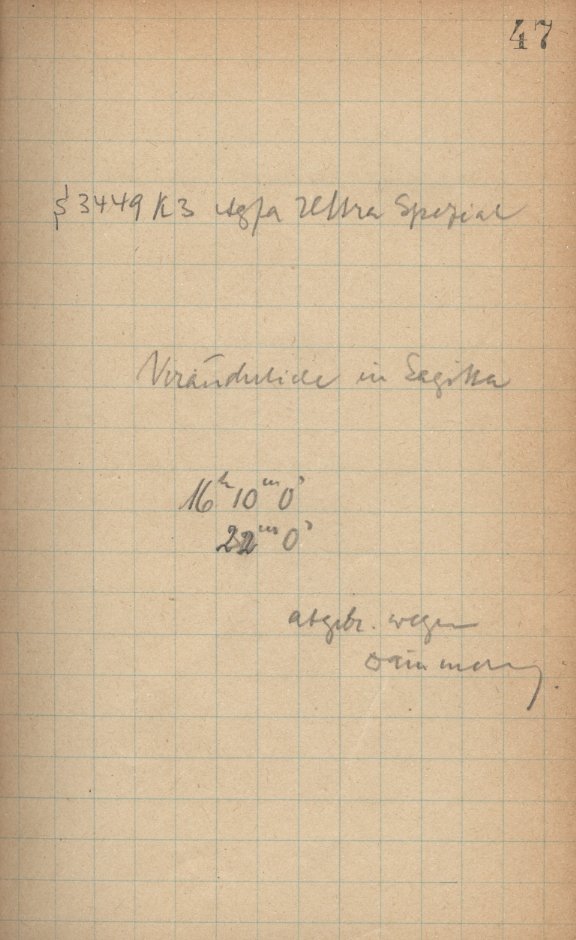 47
§ 3449 K3 Agfa Ultra Spezial
Veränderliche in Sagitta
16ʰ10ᵐ0ˢ
22ᵐ0ˢ
abgebr. wegen
Dämmerung